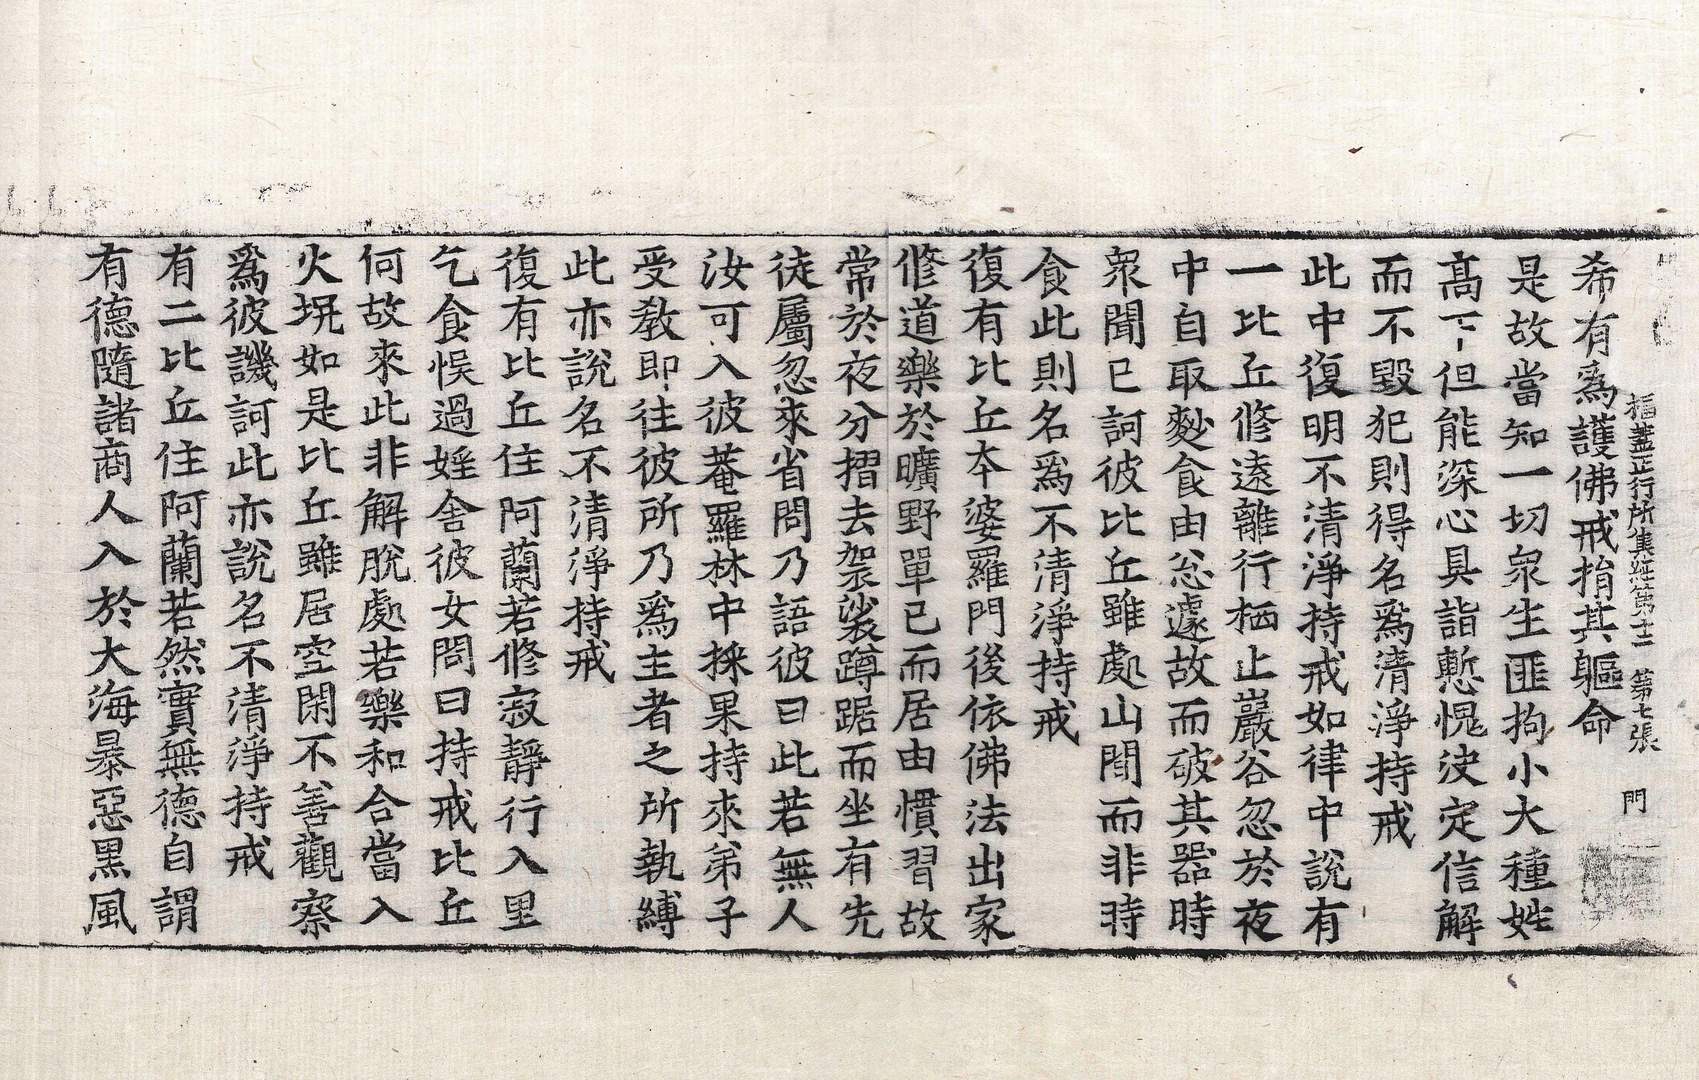 福蓋正行所集經第十二 第七張 門
希有爲護佛戒捐其軀命
是故當知一切衆生匪拘小大種姓
高下但能深心具諧慙愧決定信解
而不毀犯則得名爲清淨持戒
此中復明不清淨持戒如律中說有
一比丘修遠離行栖止巖谷忽於夜
中自取麨食由忩遽故而破其器時
衆聞已訶彼比丘雖處山間而非時
食此則名爲不清淨持戒
復有比丘本婆羅門後依佛法出家
修道樂於曠野單己而居由慣習故
常於夜分摺去袈裟蹲踞而坐有先
徒屬忽來省問乃語彼曰此若無人
汝可入彼菴羅林中採果持來弟子
受教即往彼所乃爲主者之所執縛
此亦說名不清淨持戒
復有比丘住阿蘭若修寂靜行入里
乞食悞過婬舍彼女問曰持戒比丘
何故來此非解脫處若樂和合當入
火坑如是比丘雖居空閑不善觀察
爲彼譏訶此亦說名不清淨持戒
有二比丘住阿蘭若然實無德自謂
有德隨諸商人入於大海暴惡黑風